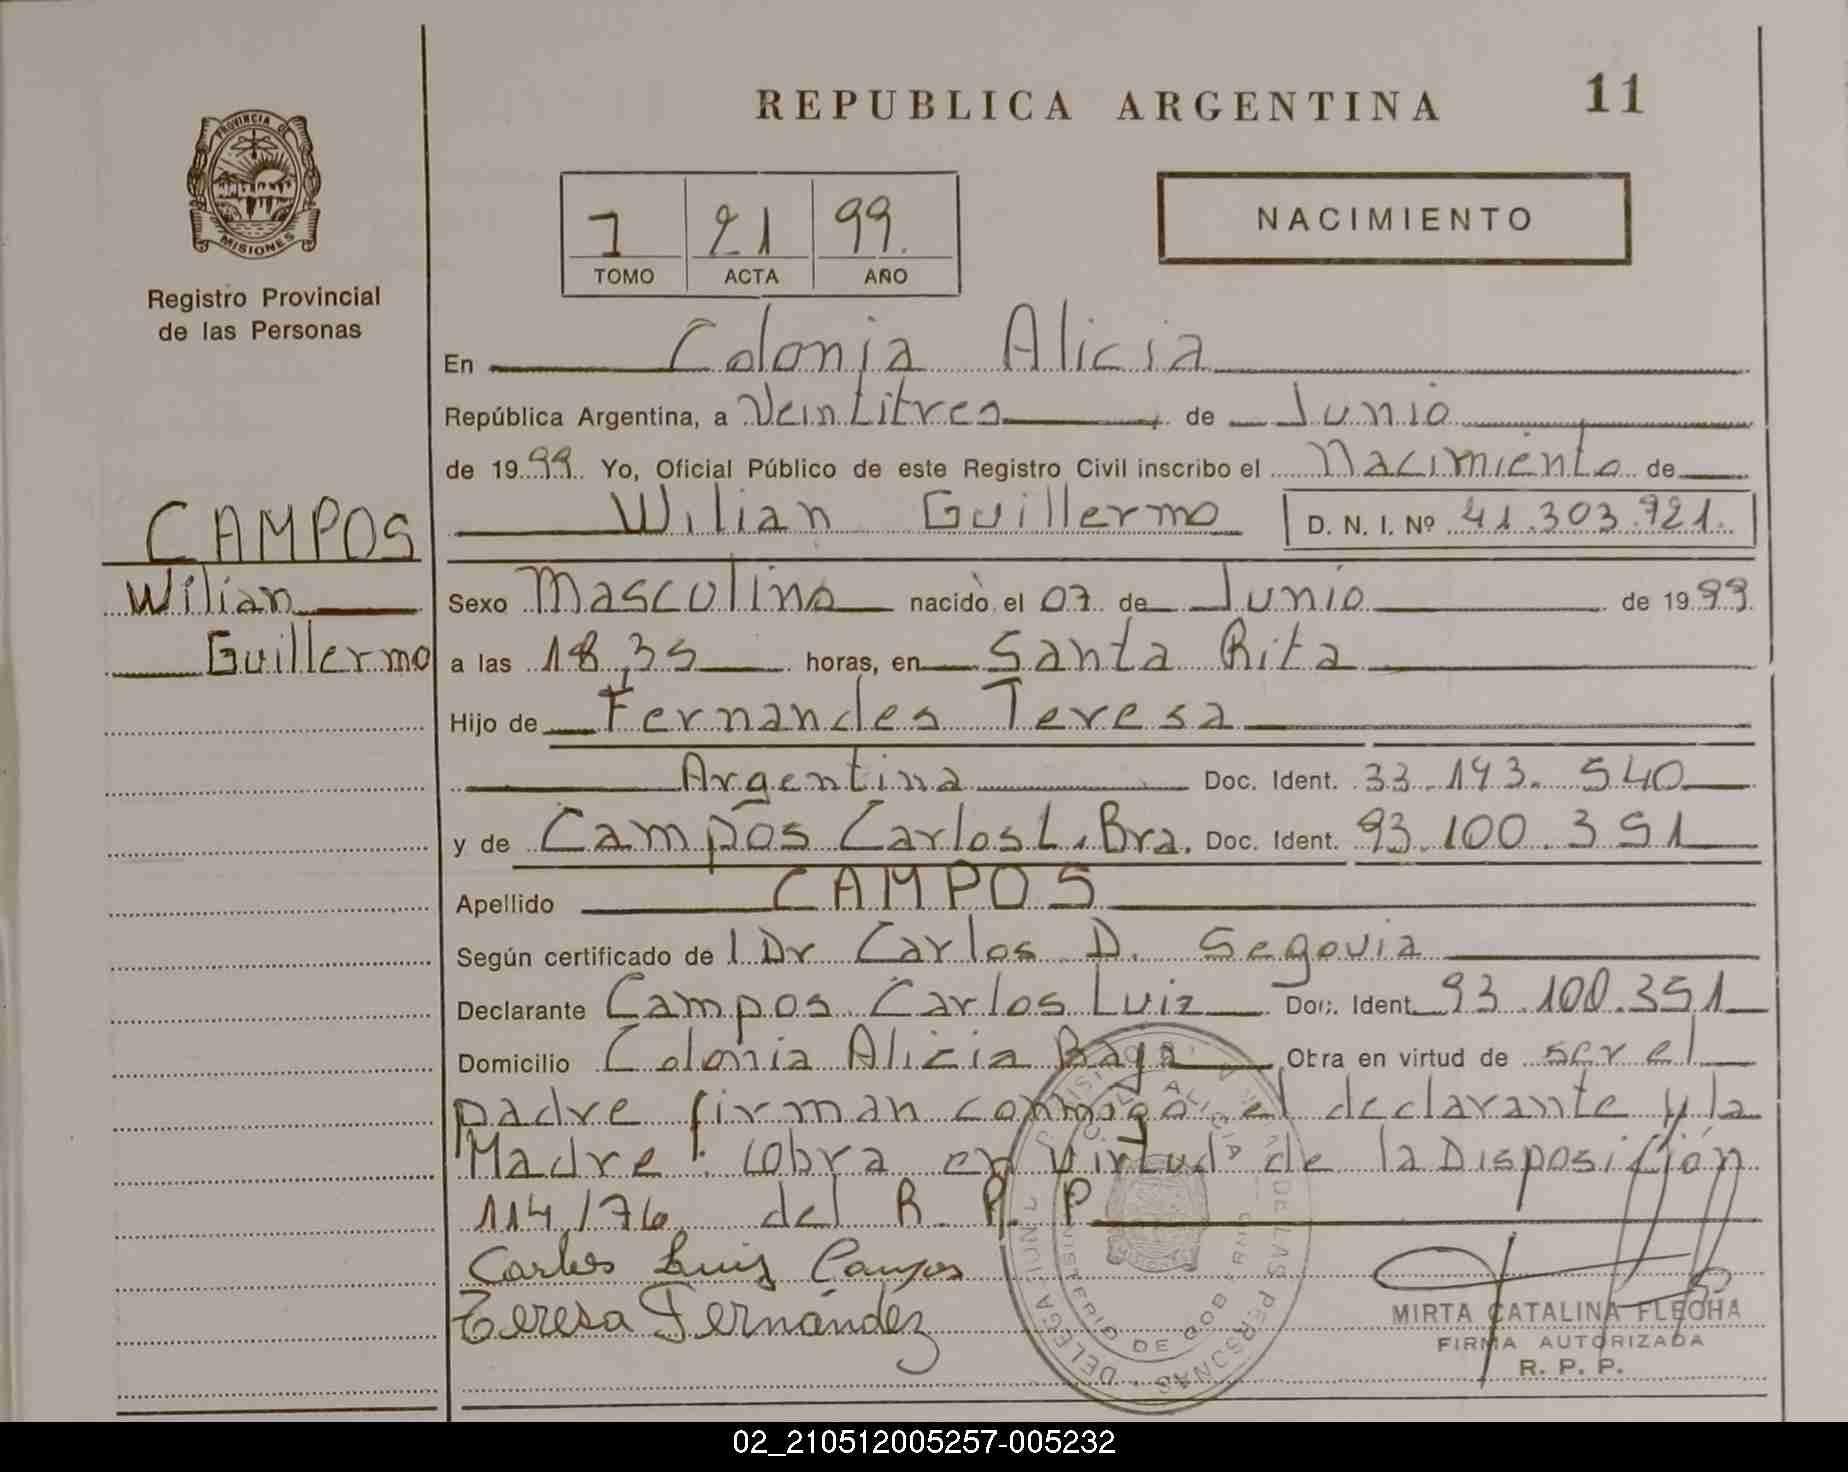 REPUBLICA ARGENTINA
11
PROVINCIA DE
MISIONES
Registro Provincial
de las Personas
1 21 99.
TOMO ACTA AÑO
NACIMIENTO
En Colonia Alicia
República Argentina, a Veintitres de Junio
de 1999 Yo, Oficial Público de este Registro Civil inscribo el Nacimiento de
Wilian Guillermo D. N. I. Nº 41.303.721.
CAMPOS
Wilian
Guillermo
Sexo Masculino nacido el 07 de Junio de 1999.
a las 18,35 horas, en Santa Rita
Hijo de Fernandes Teresa
Argentina Doc. Ident. 33.193.540
y de Campos Carlos L. Bra. Doc. Ident. 93.100.351
Apellido CAMPOS
Según certificado de l Dr Carlos D. Segovia
Declarante Campos Carlos Luiz Doc. Ident. 93.100.351
Domicilio Colonia Alicia Baja Obra en virtud de ser el
padre firman conmigo el declarante y la
Madre: Cobra en Virtud de la Disposición
114/76 del R. P. P
Carlos Luis Campos
Teresa Fernández
MIRTA CATALINA FLECHA
FIRMA AUTORIZADA
R. P. P.
02_210512005257-005232